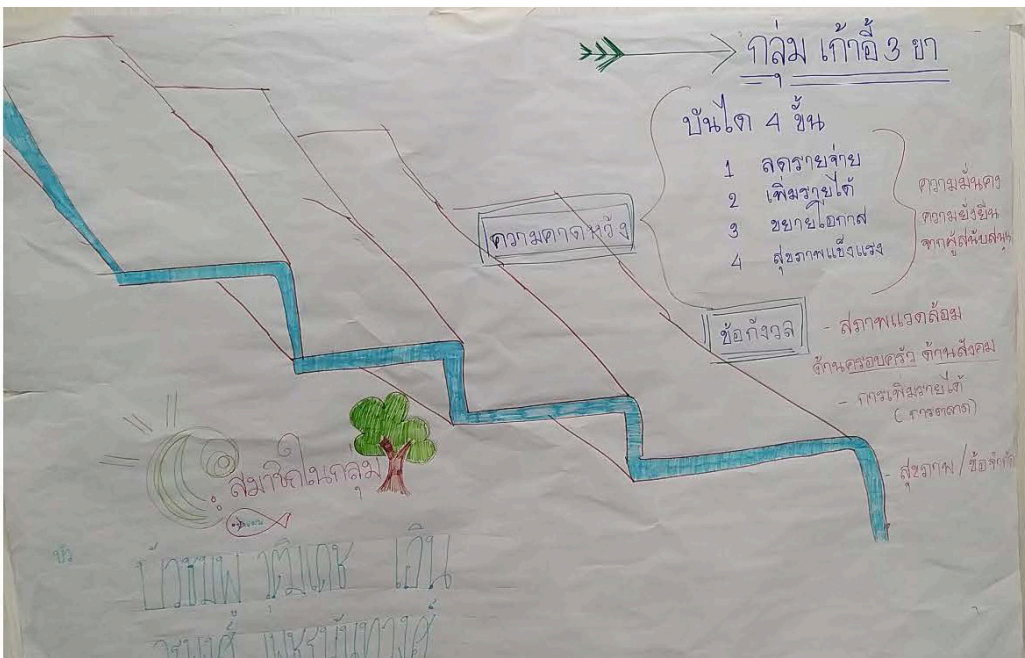 กลุ่ม เก้าอี้ 3 ขา
บันได 4 ขั้น
1 ลดรายจ่าย
2 เพิ่มรายได้
3 ขยายโอกาส
4 สุขภาพแข็งแรง
ความมั่นคง
ความยั่งยืน
จากผู้สนับสนุน
ความคาดหวัง
ข้อกังวล
- สภาพแวดล้อม
ด้านครอบครัว ด้านสังคม
- การเพิ่มรายได้
(การตลาด)
- สุขภาพ / ข้อจำกัด
สมาชิกในกลุ่ม
บัว
วุฒิเดช เอิน